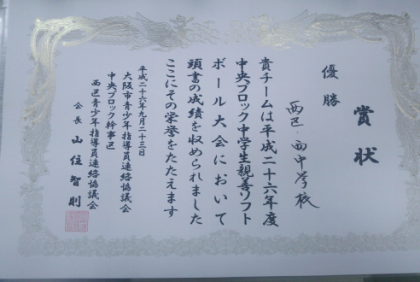 賞状
優勝
西区 西中学校
貴チームは平成二十六年度
中央ブロック中学生親善ソフト
ボール大会において
頭書の成績を収められました
ここにその栄誉をたたえます
平成二十六年九月二十三日
大阪市青少年指導員連絡協議会
中央ブロック幹事区
西区青少年指導員連絡協議会
会長 山住智則